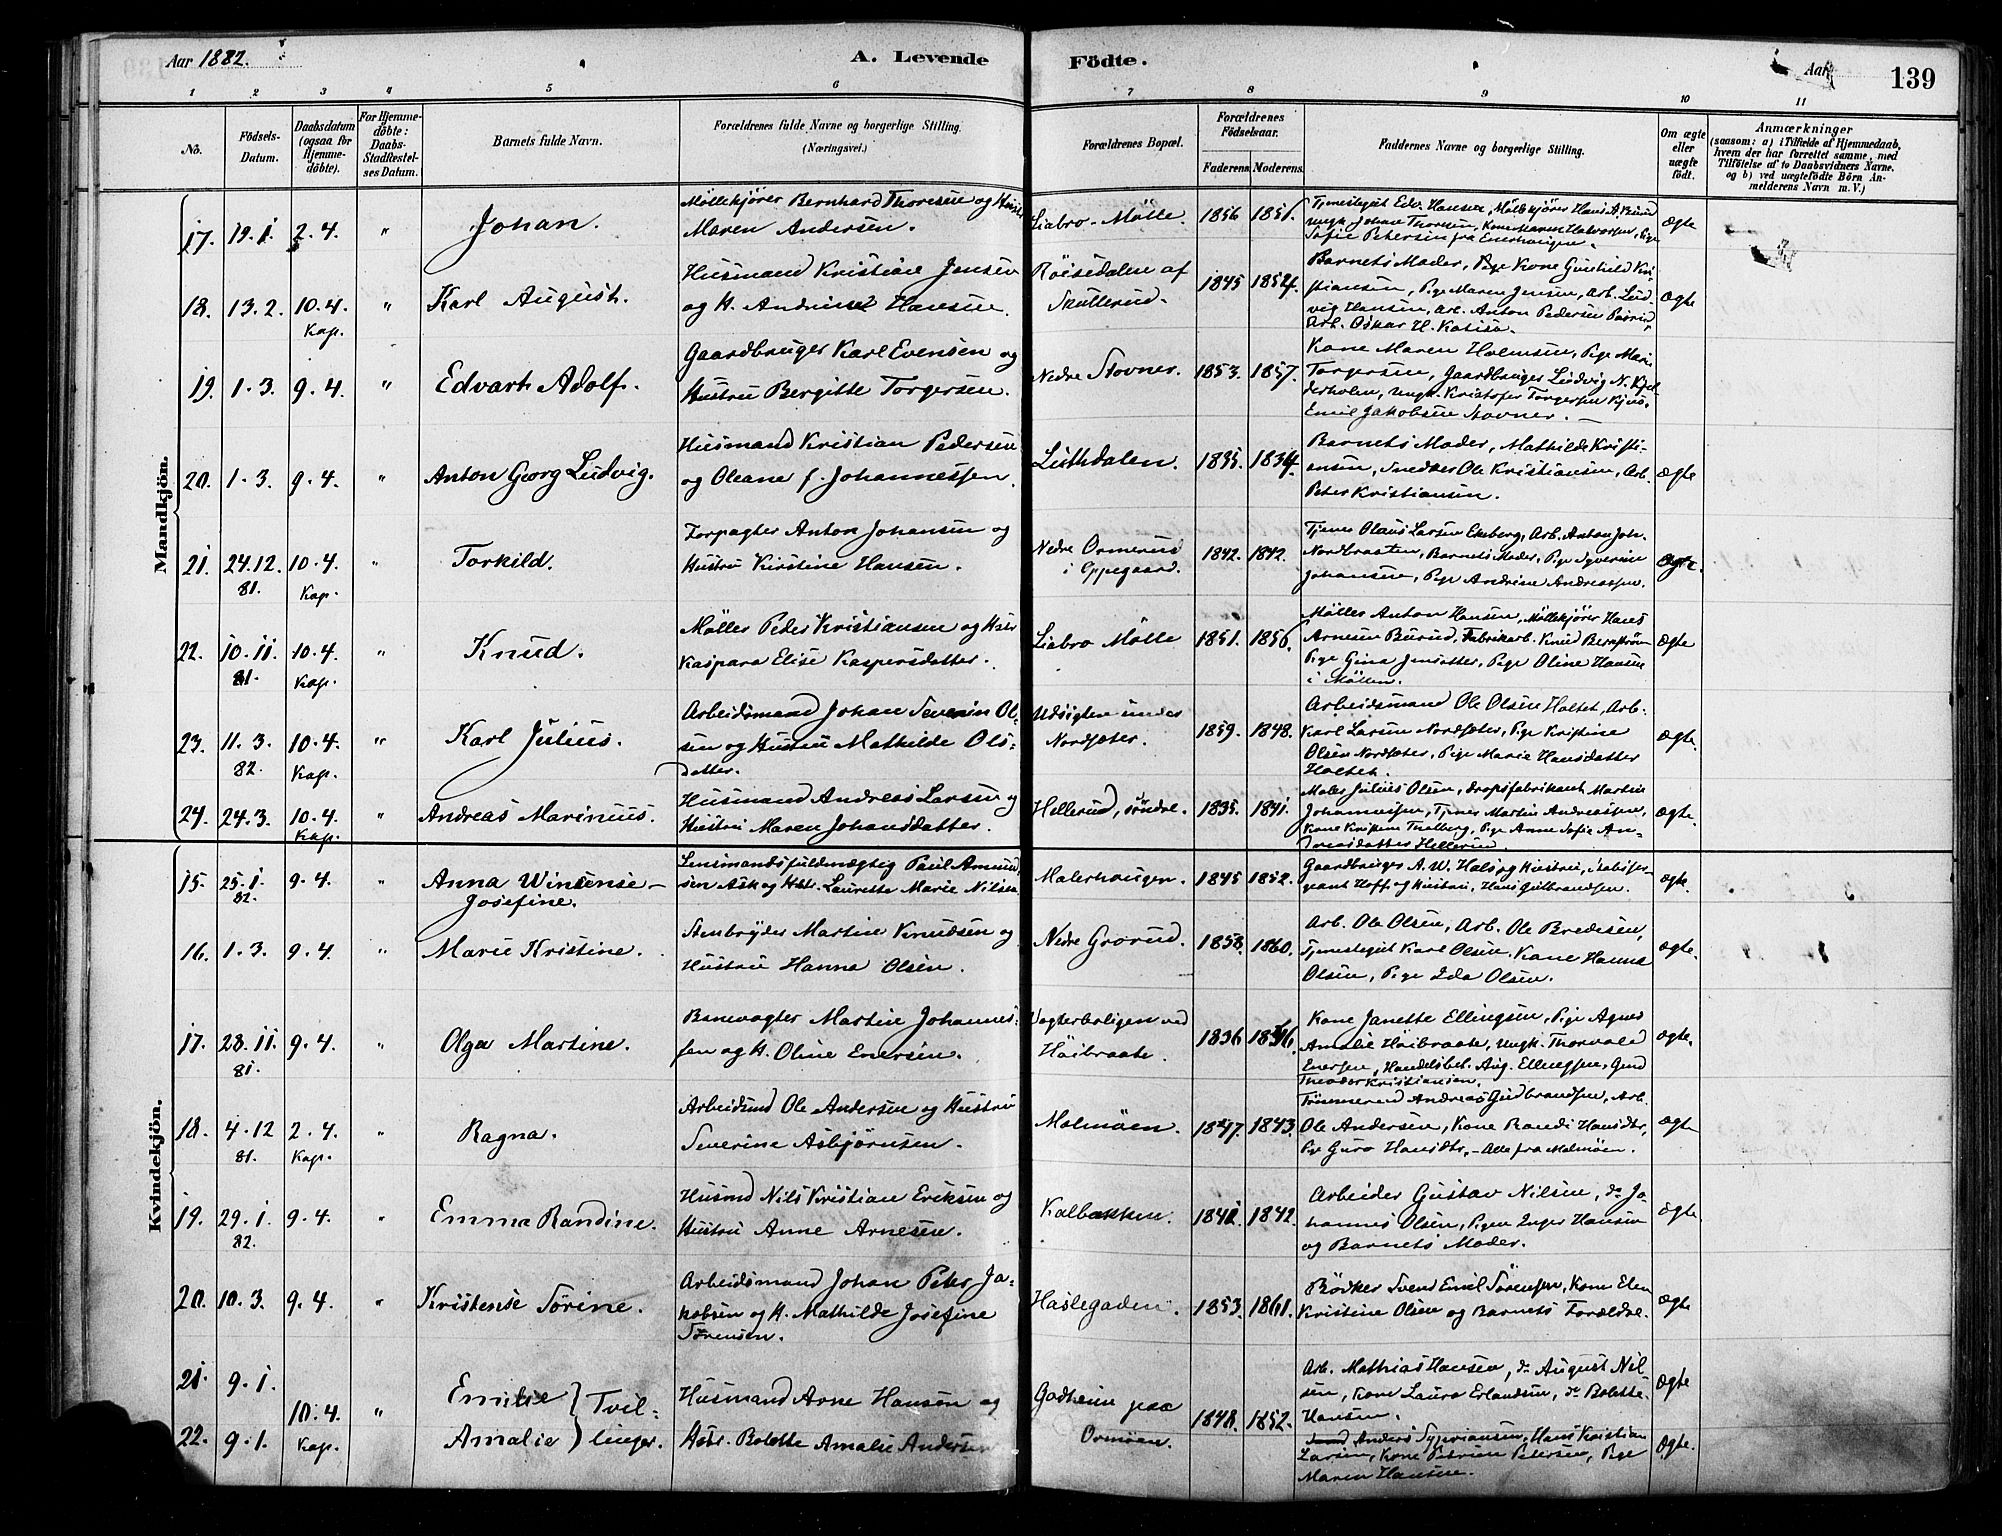 Aar 1882.
A. Levende Födte.
Aar
139
1 2 3 4 5 6 7 8 9 10 11
No.
Födsels-
Datum.
Daabsdatum
(ogsaa for
Hjemme-
döbte).
For Hjemme-
döbte:
Daabs-
Stadfæstel-
ses Datum.
Barnets fulde Navn.
Forældrenes fulde Navne og borgerlige Stilling.
(Næringsvei.)
Forældrenes Bopæl.
Forældrenes
Födselsaar.
Faderens. Moderens.
Faddernes Navne og borgerlige Stilling.
Om ægte
eller
uægte
födt.
Anmærkninger
(saasom: a) i Tilfælde af Hjemmedaab,
hvem der har forrettet samme, med
Tilföielse af to Daabsvidners Navne,
og b) ved uægtefödte Börn An-
melderens Navn m. V.)
Mandkjön.
17. 19.1. 2.4. " Johan.
Möllekjörer Bernhard Thoresen og Hustr
Maren Andersen.
Liabro-Mölle 1856 1851.
Tjenestegut Edv. Hansen, Möllekjörer Hans A. Burud
ungk. Johan Thoresen, Kone Maren Halvorsen, Pige
Sofie Petersen fra Enerhaugen.
ægte
18. 13.2. 10.4. Kap. " Karl August.
Husmand Kristian Jensen
og H. Andrine Hansen.
Röisedalen af
Skullerud.
1845 1852.
Barnets Moder, Kone Gunhild Kri-
stiansen, Pige Maren Jensen, Arb. Lud-
vig Hansen, Arb. Anton Pedersen
Arb. Oskar H. Katisa.
ægte
19. 1.3. 9.4. " Edvart Adolf.
Gaardbruger Karl Evensen og
Hustru Bergitte Torgersen.
Nedre Stovner. 1853. 1857.
Kone Maren Holmsen, Pige Mari
Torgersen, Gaardbruger Ludvig N. Kjel-
derholen, ungk. Kristofer Torgersen Kjus.
Emil Jakobsen Stovner.
ægte
20. 1.3. 9.4. " Anton Georg Ludvig.
Husmand Kristian Pedersen
og Oleane f. Johannessen.
Listhdalen. 1835. 1834.
Barnets Moder, Mathilde Kristi-
ansen, Snedker Ole Kristiansen, Arb.
Peter Kristiansen.
ægte
21. 24.12. 81. 10.4. Kap. " Torkild.
Forpagter Anton Johansen og
Hustru Kirstine Hansen.
Nedre Ormerud
i Oppegaard.
1842. 1842.
Tjener Olaus Larsen Ekeberg, Arb. Anton Joh.
Nordbraaten, Barnets Moder, Pige Syverine
Johansen, Pige Andrine Andreassen.
ægte.
22. 10.11. 81. 10.4. Kap. " Knud.
Möller Peder Kristiansen og Hstr
Kaspara Elise Kaspersdatter.
Liabro Mölle 1851. 1856.
Möller Anton Hansen, Möllekjörer Hans
Arnesen Burud, Fabrikarb. Knud Bernström
Pige Gina Jensdatter, Pige Oline Hansen
i Möllen.
ægte
23. 11.3. 82. 10.4. Kap. " Karl Julius.
Arbeidsmand Johan Severin Ol-
sen og Hustru Mathilde Ols-
datter.
Udsigten under
Nordsæter.
1859. 1848.
Arbeidsmand Ole Olsen Holtet, Arb.
Karl Larsen Nordsæter, Pige Kristine
Olsen Nordsæter, Pige Marie Hansdatter
Holtet.
ægte.
24. 24.3. 10.4. Kap. " Andreas Marinius.
Husmand Andreas Larsen og
Hustru Maren Johansdatter.
Hellerud, söndre. 1835. 1841.
Maler Julius Olsen, Dropsfabrikant Martin
Johannessen, Tjener Martin Andreassen,
Kone Thalberg, Pige Anne Sofie An-
dreasdatter Hellerud.
ægte.
Kvindekjön.
15. 25.1. 82. 9.4. " Anna Winsense-
Josefine.
Lensmandsfuldmægtig Paul Amund
sen Ask og Hstr. Laurette Marie Nilsen
Malerhaugen. 1845 1852.
Gaardbruger A. W. Hals og Hustru,
Hoff og Hustru, Hans Gulbrandsen.
ægte.
16. 1.3. 9.4. " Marie Kristine.
Stenbryder Martin Knudsen og
Hustru Hanna Olsen.
Nedre Grorud. 1858. 1860.
Arb. Ole Olsen, Arb. Ole Bredesen,
Tjenestegut Karl Olsen. Kone Hanna
Olsen, Pige Ida Olsen.
ægte.
17. 28.11. 81. 9.4. " Olga Martine.
Banevogter Martin Johannes-
sen og H. Oline Enersen.
Vogterboligen ved
Höibraate.
1836 1846.
Kone Janette Ellingsen, Pige Agnes
Amalie Höibraate, ungk. Thorvald
Enersen, Handelsbet. Aug. Ellingsen, Gmd
Theodor Kristiansen.
ægte.
18. 4.12 81. 2.4. Kap. " Ragna.
Arbeidsmd Ole Andersen og Hustru
Severine Asbjörnsen.
Malmöen. 1847. 1843.
Tömmermd Andreas Gudbrandsen, Arb.
Ole Andersen, Kone Randi Hansdtr,
Pige Guro Hansdtr, - Alle fra Malmöen.
ægte
19. 29.1. 82. 9.4. " Emma Randine.
Husmd Nils Kristian Eriksen og
Hustru Anne Arnesen.
Kalbakken. 1841. 1842.
Arbeider Gustav Nilsen, do Jo-
hannes Olsen, Pigen Inger Hansen
og Barnets Moder.
ægte.
20. 10.3. 9.4. " Kristense Sörine.
Arbeidsmand Johan Peter Ja-
kobsen og H. Mathilde Josefine
Sörensen.
Haslegaden. 1853. 1861.
Bödker Svend Emil Sörensen, Kone Elen
Kristine Olsen og Barnets Forældre.
ægte
21. 9.1.
22. 9.1.
10.4. Kap. "
Emilie } Tvil-
Amalie } linger.
Husmand Arne Hansen og
Hstr. Bolette Amalie Andersen
Gadheim paa
Ormöen.
1848. 1852.
Arb. Mathias Hansen, do August Nil-
sen, Kone Laura Erlandsen, do Bolette
Hansen.
ægte
Anders Sypriansen, Hans Kristian
Larsen, Kone Petrine Petersen, Pige
Maren Hansen.
ægte.